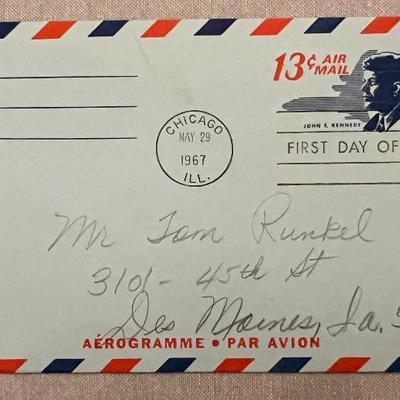 13¢ AIR MAIL
JOHN F. KENNEDY
CHICAGO
MAY 29
1967
ILL.
FIRST DAY OF
Mr Tom Runkel
3101 - 45th St
Des Moines, Ia. 5
AÉROGRAMME • PAR AVION